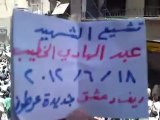 تشييع الشهيد
عبد الهادي الخطيب
٢٠١٢/٦/١٨
ريف دمشق جديدة عرطوز